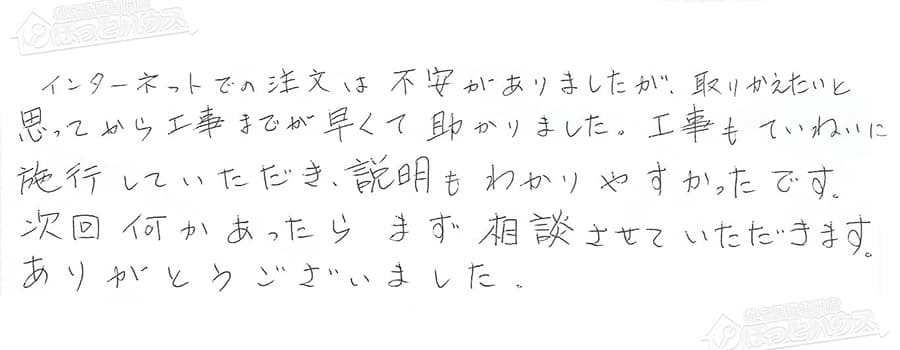 インターネットでの注文は不安がありましたが、取りかえたいと
思ってから工事までが早くて助かりました。工事もていねいに
施行していただき、説明もわかりやすかったです。
次回何かあったらまず相談させていただきます。
ありがとうございました。
ほっとハウス
ほっとハウス